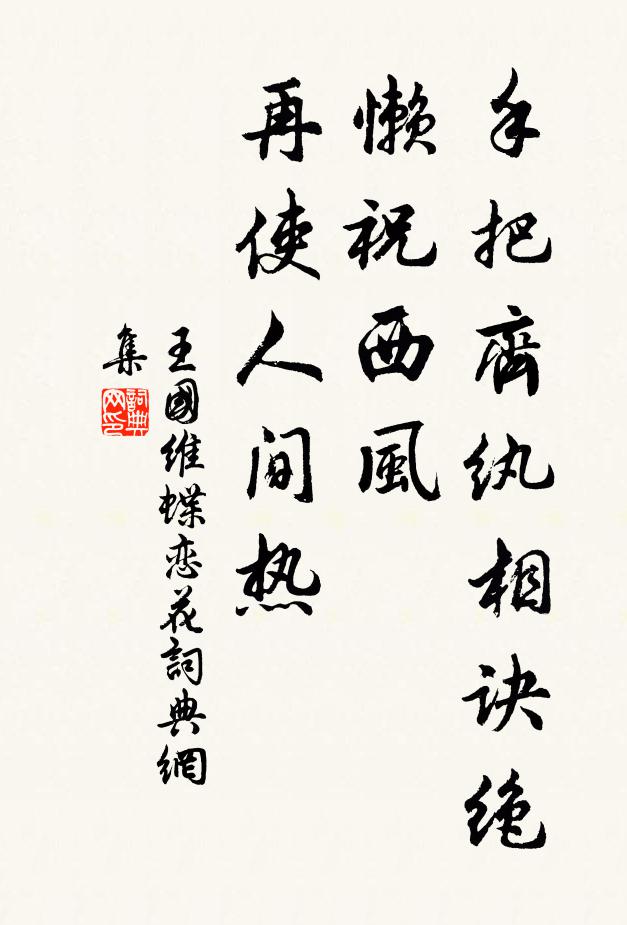 手把齊紈相诀绝
懒祝西風
再使人间热
王國维蝶恋花詞典網
集
詞典
网印